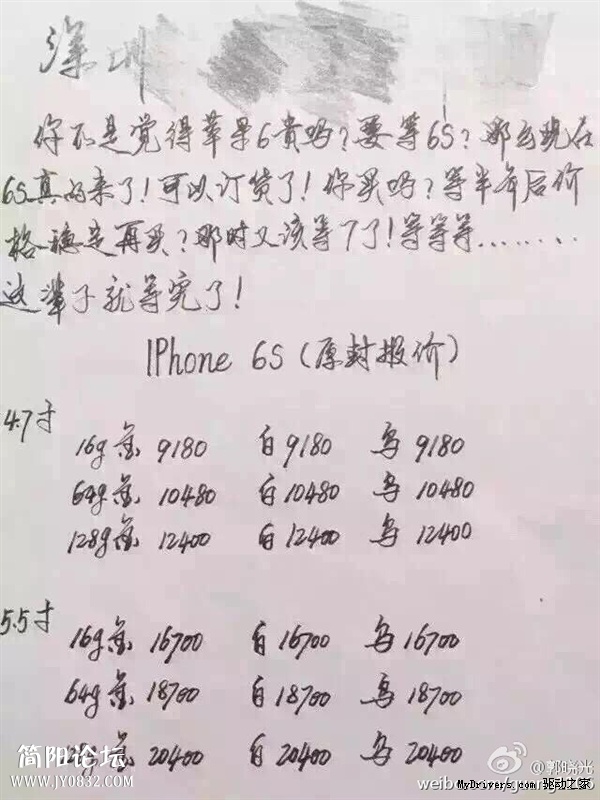 深圳
你不是觉得苹果6贵吗?要等6S?那么现在
6S真的来了!可以订货了!你买吗?等半年后价
格稳定再买?那时又该等7了!等等等........
这辈子就等完了!
IPhone 6S(原封报价)
4.7寸
16g金 9180 白9180 乌9180
64g金 10480 白10480 乌10480
128g金 12400 白12400 乌12400
5.5寸
16g金 16700 白16700 乌16700
64g金 18700 白18700 乌18700
128g金 20400 白20400 乌20400
简阳论坛
www.JY0832.com
@郭晓光
MyDrivers.com 驱动之家